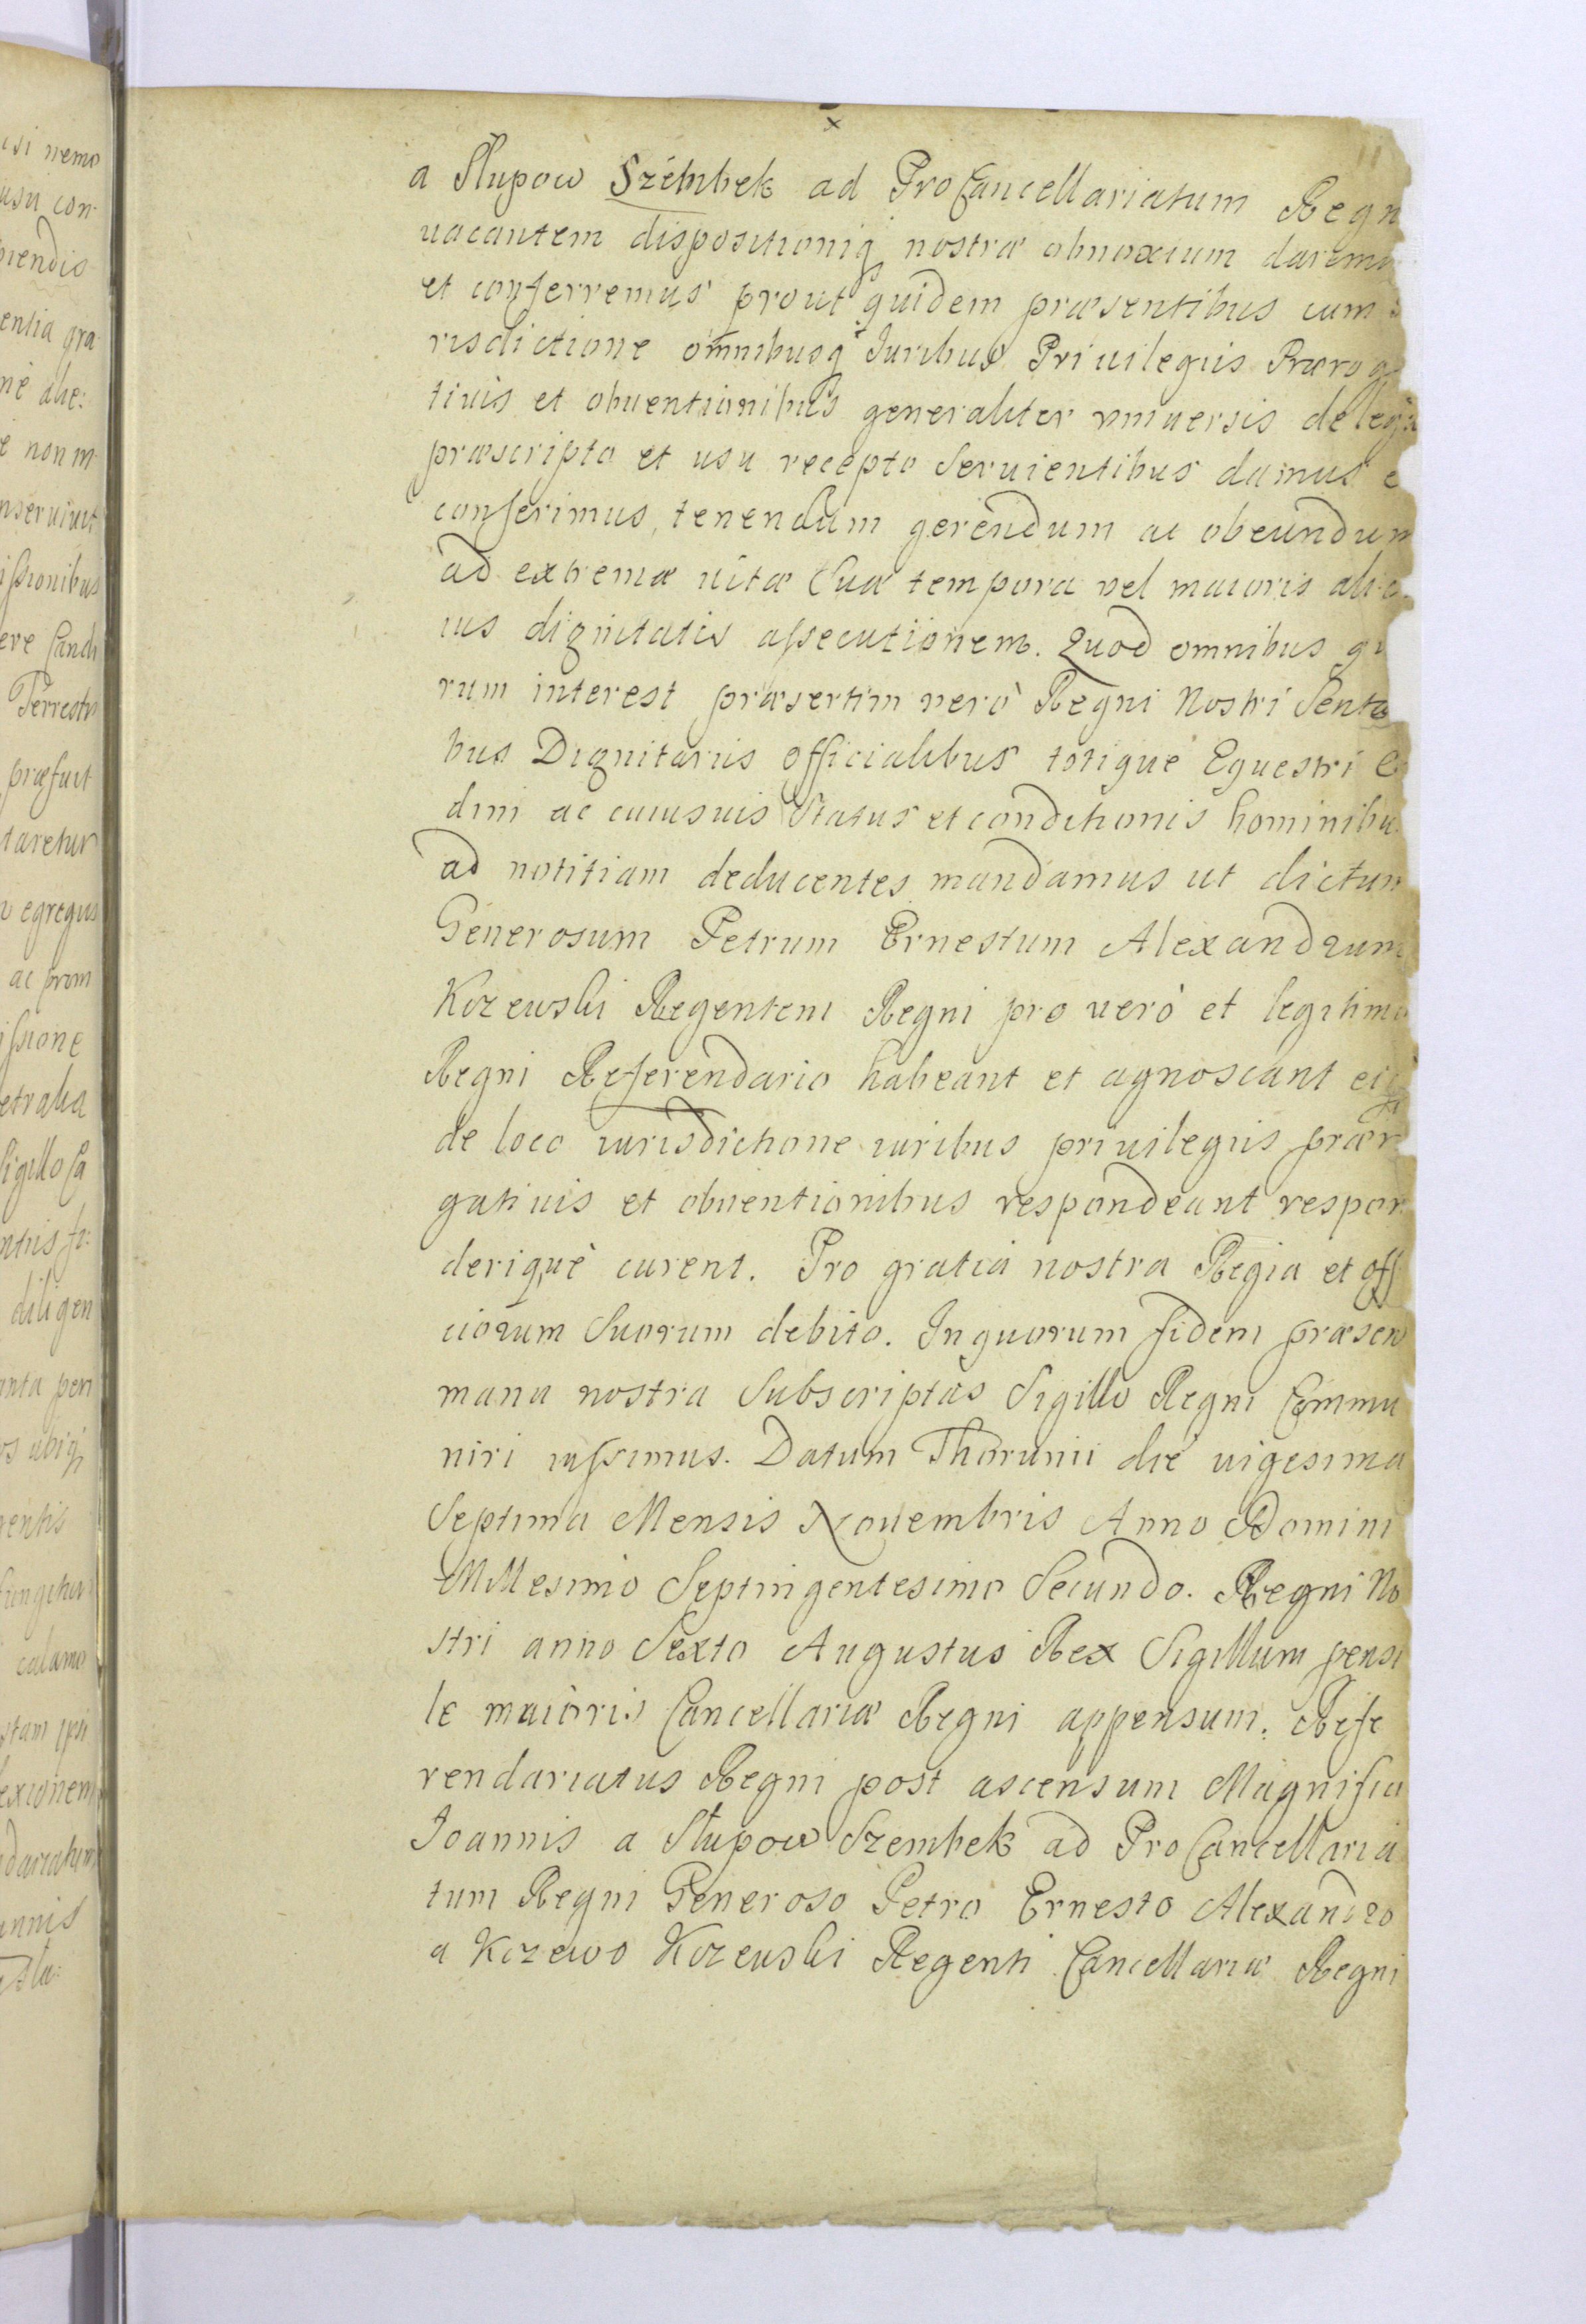 a Słupow Szembek ad ProCancellariatum Regn
uacantem dispositioniq nostræ obnoxium daremu
et conferremus prout quidem præsentibus cum
risdictione omnibusq Juribus Priuilegiis Prærog
tiuis et obuentionibus generaliter vniuersis de lege
præscripto et usu recepto Seruientibus damus e
conferimus, tenendum gerendum ac obeundum
ad extremæ uitæ Suæ tempora vel maioris alic
ius dignitatis assecutionem. Quod omnibus qu
rum interest præsertim verò Regni Nostri Sento
bus Dignitariis officialibus totique Equestri
dini ac cuiusuis Status et conditionis hominibu
ad notitiam deducentes mandamus ut dictum
Generosum Petrum Ernestum Alexandrum
Kczewski Regentem Regni pro uero et legitimo
Regni Referendario habeant et agnoscant eiq
de loco iurisdictione iuribus priuilegiis prær
gatiuis et obuentionibus respondeant respon
derique curent. Pro gratia nostra Regia et offi
ciorum Suorum debito. In quorum fidem præsen
manu nostra Subscriptas Sigillo Regni Commu
niri iussimus. Datum Thorunii die uigesima
Septima Mensis Nouembris Anno Domini
Millesimo Septingentesimo Secundo. Regni No
stri anno Sexto Augustus Rex Sigillum pensi
le maioris Cancellariæ Regni appensum. Refe
rendariatus Regni post ascensum Magnifici
Joannis a Słupow Szembek ad ProCancellaria
tum Regni Generoso Petro Ernesto Alexandro
a Kczewo Kczewski Regenti Cancellariæ Regni